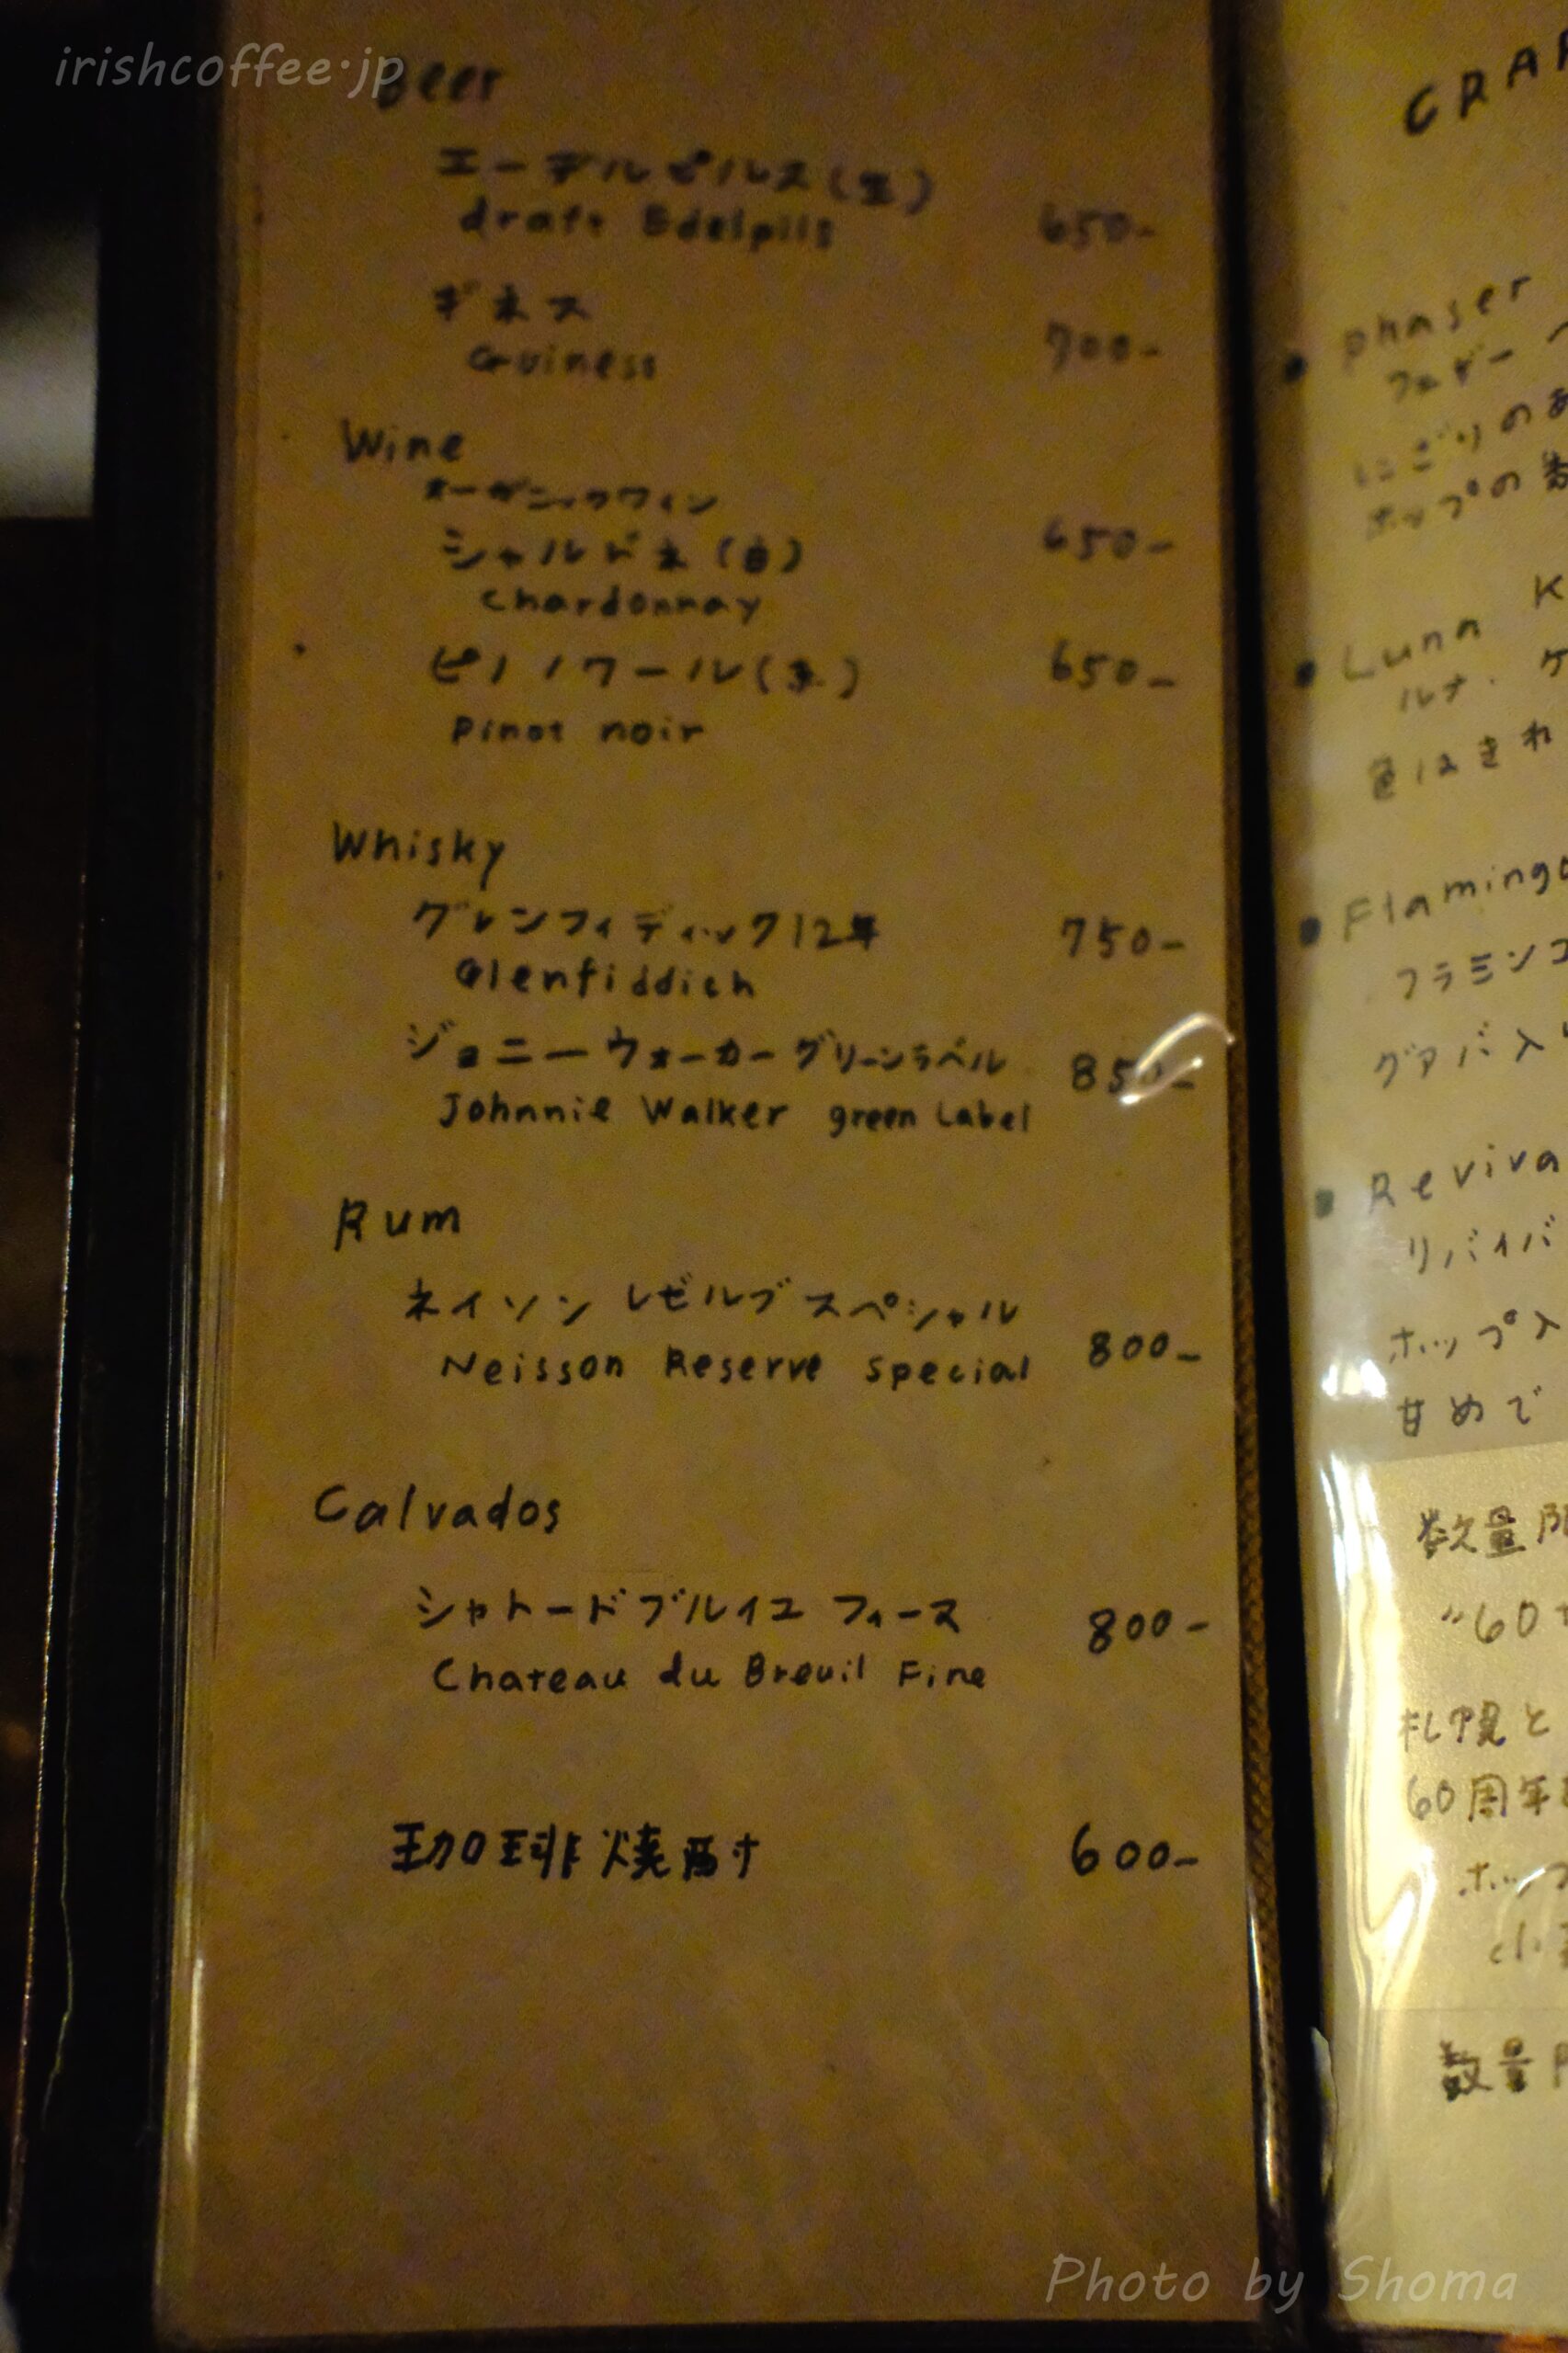 irishcoffee.jp
Beer
エーデルピルス(生)
draft Edelpils 650-
ギネス
Guiness 700-
Wine
オーガニックワイン
シャルドネ(白) 650-
chardonnay
ピノノワール(赤) 650-
pinot noir
Whisky
グレンフィディック12年 750-
Glenfiddich
ジョニーウォーカーグリーンラベル 850-
Johnnie Walker green Label
Rum
ネイソン レゼルブ スペシャル
Neisson Reserve special 800-
Calvados
シャトードブルイユ フィーヌ 800-
Chateau du Breuil Fine
珈琲焼酎 600-
CRAF
phaser
フェザー
にごりのあ
ホップの数
Luna K
ルナ・ケ
色はきれ
Flamingo
フラミンゴ
グアバ入り
Reviva
リバイバ
ホップ入
甘めで
数量限
"60
札幌と
60周年
ホップ
小麦
数量限
Photo by Shoma